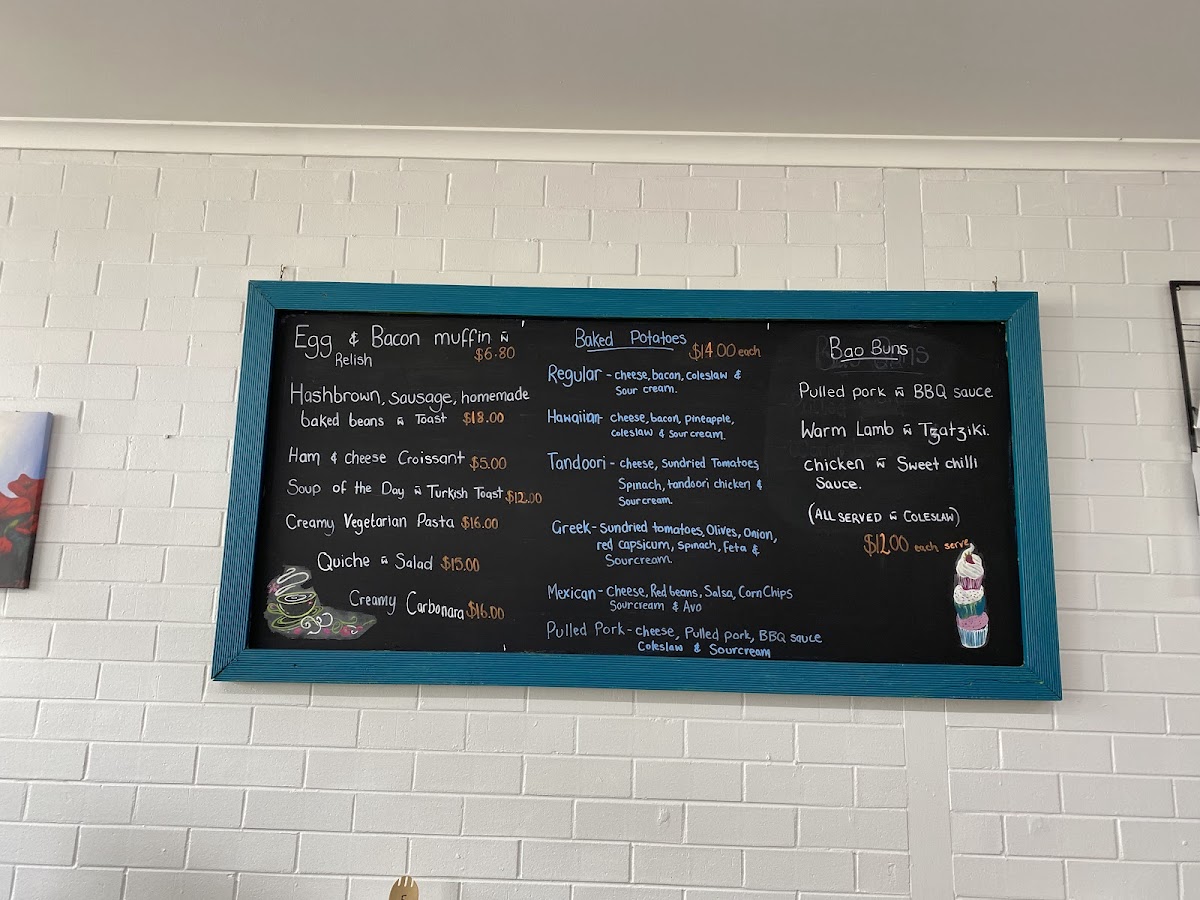 Egg & Bacon muffin w̃
Relish $6.80
Hashbrown, Sausage, homemade
baked beans w̃ Toast $18.00
Ham & cheese Croissant $5.00
Soup of the Day w̃ Turkish Toast $12.00
Creamy Vegetarian Pasta $16.00
Quiche w̃ Salad $15.00
Creamy Carbonara $16.00
Baked Potatoes
$14.00 each
Regular - cheese, bacon, coleslaw &
Sour cream.
Hawaiian - cheese, bacon, pineapple,
coleslaw & Sour cream.
Tandoori - cheese, Sundried Tomatoes,
Spinach, tandoori chicken &
Sourcream.
Greek - Sundried tomatoes, Olives, Onion,
red capsicum, Spinach, Feta &
Sourcream.
Mexican - Cheese, Red beans, Salsa, Corn Chips
Sourcream & Avo
Pulled Pork - cheese, Pulled pork, BBQ sauce
Coleslaw & Sourcream
Bao Buns
Pulled pork w̃ BBQ sauce
Warm Lamb w̃ Tzatziki.
chicken w̃ Sweet chilli
Sauce.
(ALL SERVED w̃ COLESLAW)
$12.00 each serve